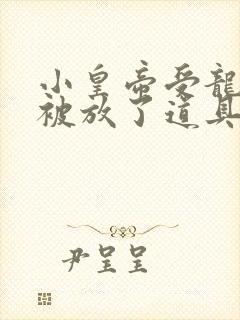 小皇帝受龍
被放了道具
尹呈呈